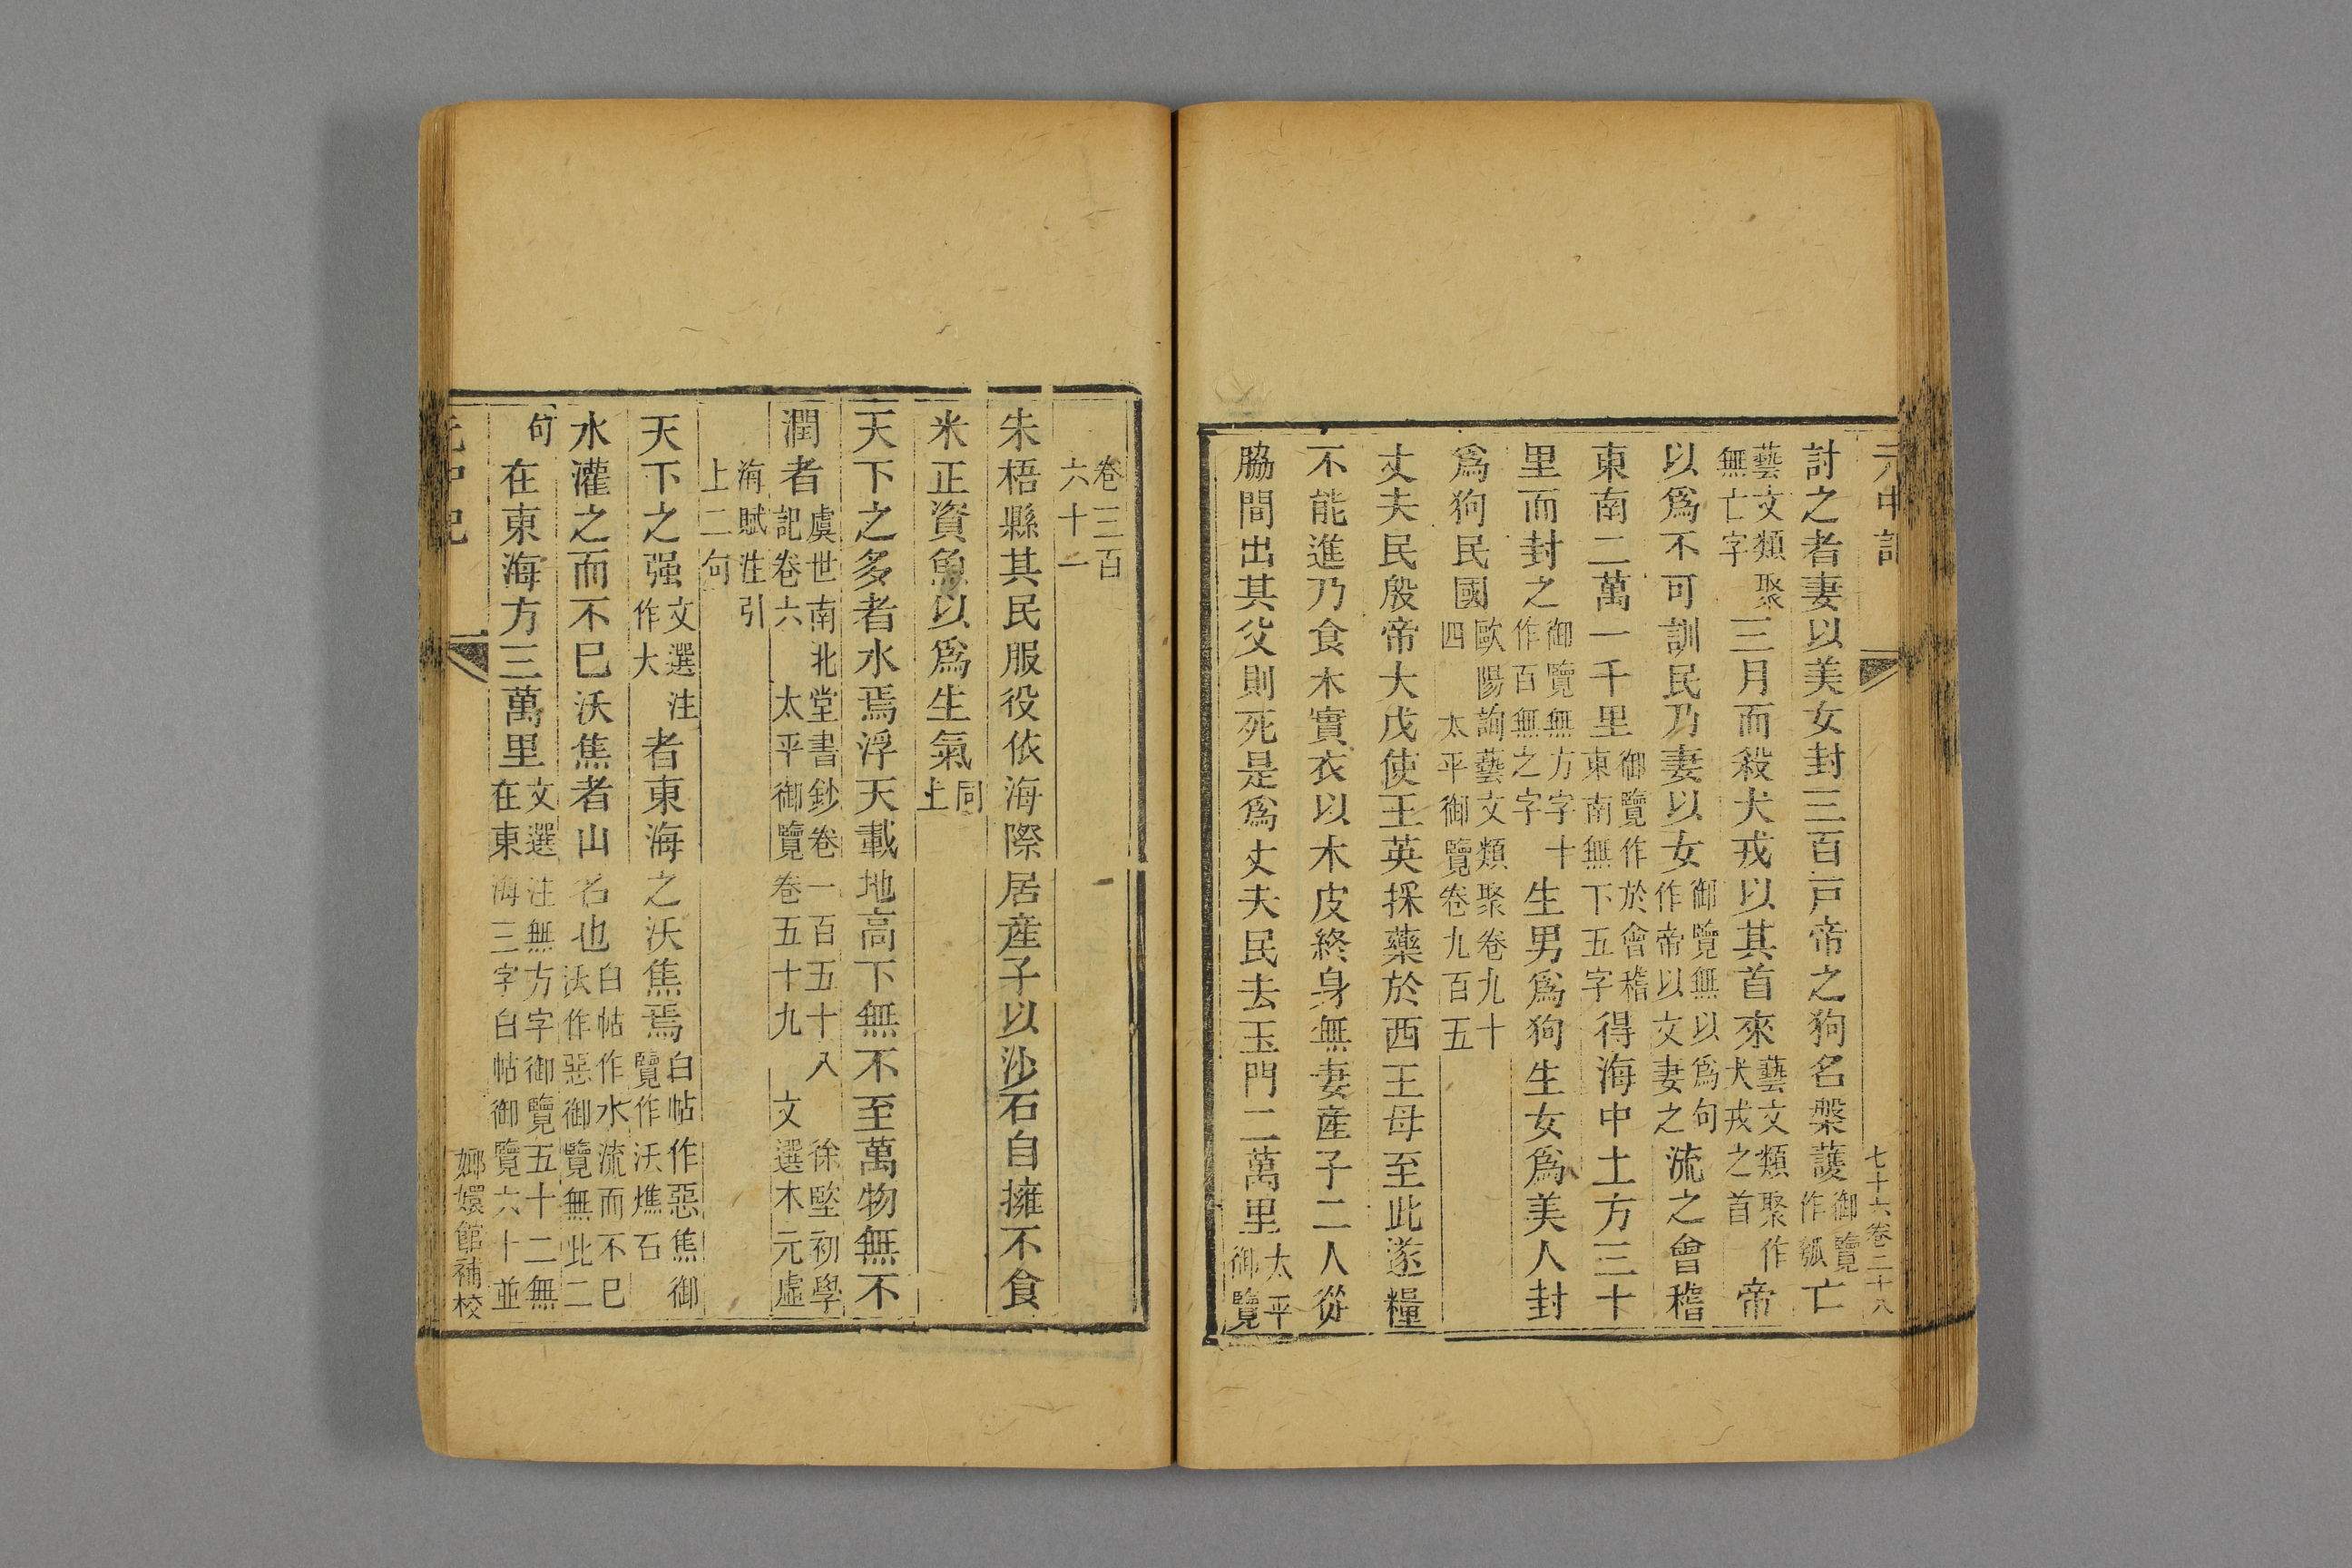 元中記
七十六卷二十八
討之者妻以美女封三百戸帝之狗名槃護御覽作瓠亡
藝文類聚無亡字三月而殺犬戎以其首來藝文類聚作犬戎之首帝
以爲不可訓民乃妻以女御覽無以爲句作帝以女妻之流之會稽
東南二萬一千里御覽作於會稽東南無下五字得海中土方三十
里而封之御覽無方字十作百無之字生男爲狗生女爲美人封
爲狗民國歐陽詢藝文類聚卷九十四 太平御覽卷九百五
丈夫民殷帝大戊使王英採藥於西王母至此遂糧
不能進乃食木實衣以木皮終身無妻産子二人從
脇間出其父則死是爲丈夫民去玉門二萬里太平御覽
卷三百六十一
朱梧縣其民服役依海際居産子以沙石自擁不食
米正資魚以爲生氣同上
天下之多者水焉浮天載地高下無不至萬物無不
潤者虞世南北堂書鈔卷一百五十八 徐堅初學記卷六 太平御覽卷五十九 文選木元虛
海賦注引上二句
天下之强文選注作大者東海之沃焦焉白帖作惡焦御覽作沃燋石
水灌之而不巳沃焦者山名也白帖作水流而不巳沃作惡御覽無此二
句在東海方三萬里文選注無方字御覽五十二無在東海三字白帖御覽六十並
元中記
嫏嬛館補校